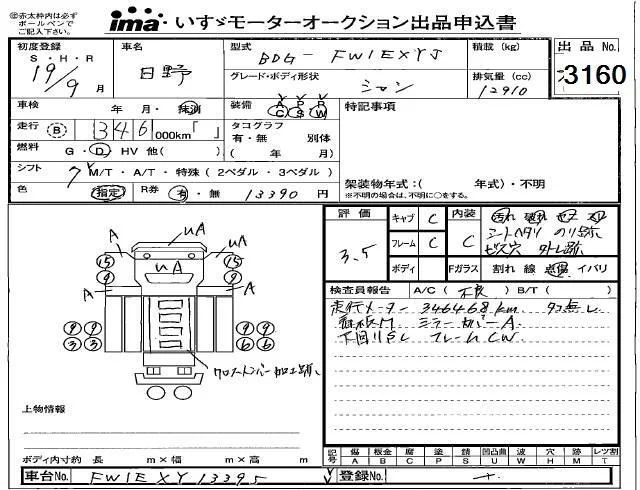 ◎赤太枠内は必ず
ボールペンで
ご記入下さい。
ima いすゞモーターオークション出品申込書
初度登録 S・H・R 19/9 月
車名 日野
型式 BDG-FW1EXYJ
グレード・ボディ形状
積載 (kg)
排気量 (cc) 12910
出品 No. 3160
車検 年 月・抹消
装備 A P R C S W
特記事項
走行 (B) 346 000km「 」
タコグラフ 有・無 別体 ( 年 月)
燃料 G・D・HV 他( )
シフト 7 M/T・A/T・特殊(2ペダル・3ペダル)
架装物年式:( 年式)・不明
※不明の場合は、不明に○をする。
色 (指定) R券 有・無 13390 円
評価 3.5
キャブ C
フレーム C
ボディ
内装 C 汚れ 破れ
シートヘタリ ノリ跡
ビス穴 外トレ跡
Fガラス 割れ 線 点傷 イバリ
検査員報告 A/C( 不良 ) B/T( )
走行メーター 346468km
看板M ミラーカバーA
下回りSC フレームCW
A uA uA uA A A
15 9 15 9
9 9 3 3 9 9 6 6
クロスメンバー加工跡
上物情報
ボディ内寸約 長 m×幅 m×高 m
記号 傷 板金 腐 塗 錆 凹凸曲 波 穴 跡 レツ割
A B C P S U W H M T
車台No. FW1EXY13395
登録No.